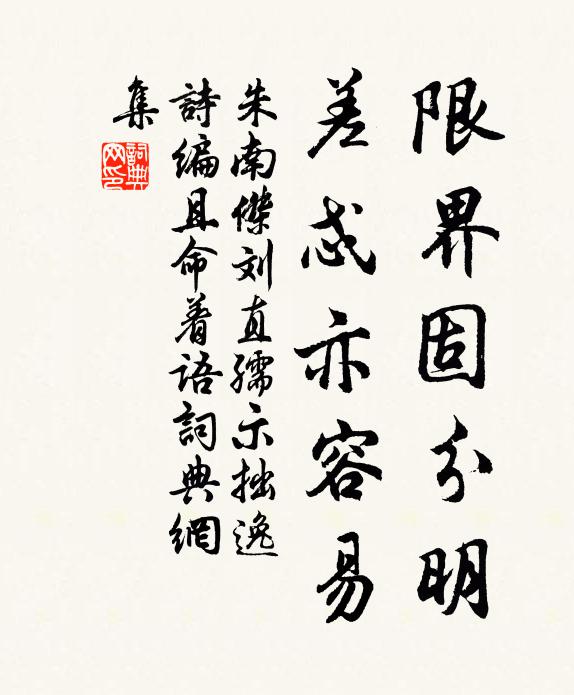 限界固分明
差忒亦容易
朱南傑刘直孺示拙逸
詩编且命着语詞典網
集
詞典网印